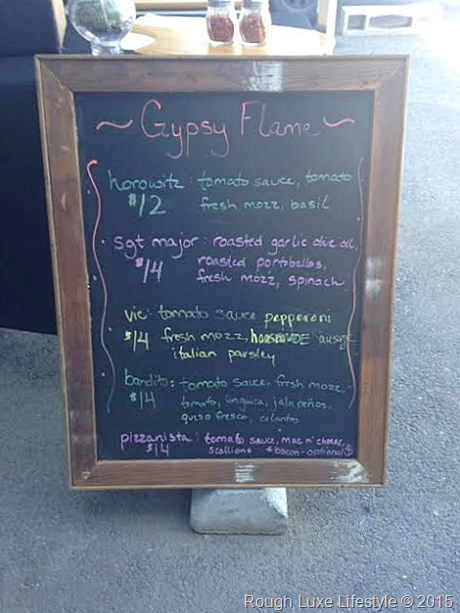 ~ Gypsy Flame ~
horowitz: tomato sauce, tomato
$12 fresh mozz, basil
sgt major: roasted garlic olive oil,
$14 roasted portobellos,
fresh mozz, spinach
vic: tomato sauce pepperoni
$14 fresh mozz, homemade
italian parsley
bandito: tomato sauce, fresh mozz,
$14 tomato, linguica, jalapeños,
queso fresco, cilantro
pizzanista: tomato sauce, mac n' cheese,
$14 scallions + bacon-optional
Rough Luxe Lifestyle © 2015